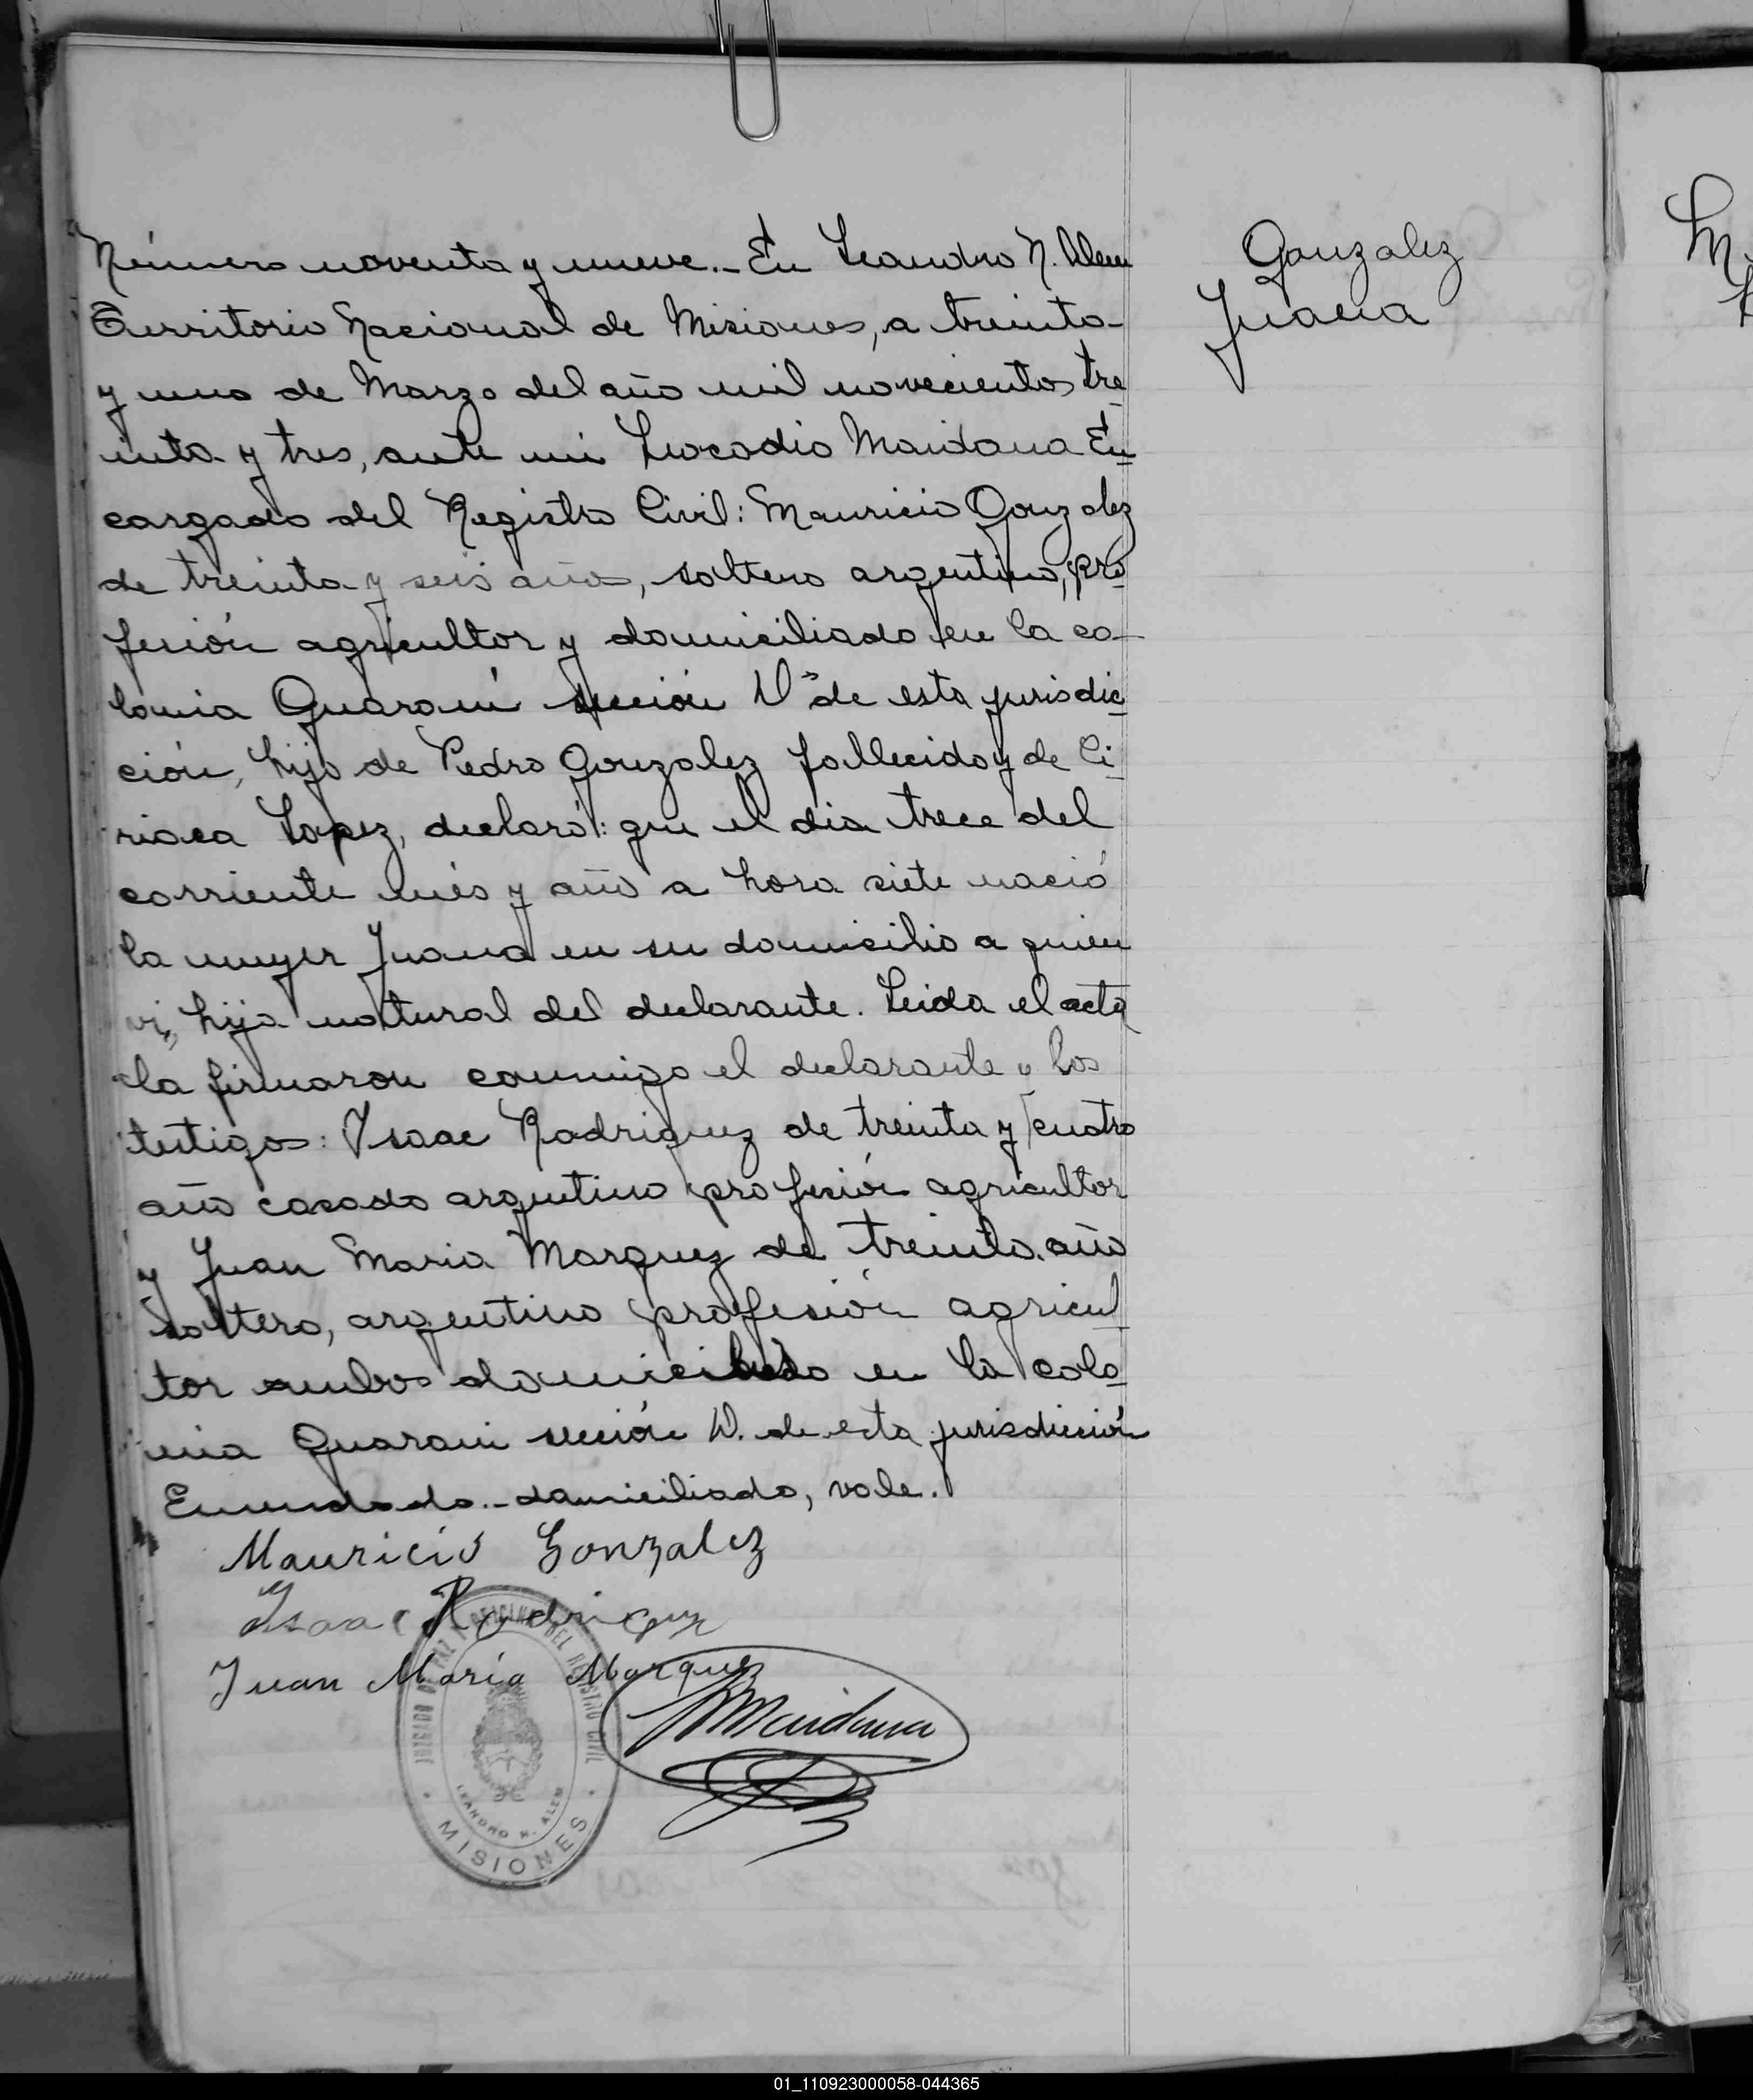 Número noventa y nueve.- En Leandro N. Alem
Territorio Nacional de Misiones, a treinta
y uno de Marzo del año mil novecientos tre
inta y tres, ante mi Leocadio Maidana En
cargado del Registro Civil: Mauricio Gonzalez
de treinta y seis años, soltero argentino, pro
fesión agricultor y domiciliado en la co-
lonia Guaraní sección de esta jurisdic
ción, hijo de Pedro Gonzalez fallecido y de Ci
riaca Lopez, declaró: que el dia trece del
corriente més y año a hora siete nació
la mujer Juana en su domicilio a quien
vi, hija natural del declarante. Leida el acta
la firmaron conmigo el declarante y los
testigos: Isaac Rodriguez de treinta y cuatro
año casado argentino profesión agricultor
y Juan Maria Marquez de treinta año
soltero, argentino profesión agricul
tor ambos domiciliado en la colo
nia Guarani sección de esta jurisdicción
Enmendado.- domiciliado, vale.
Mauricio Gonzalez
Isaac Rodriguez
Juan María Marquez
Maidana
JUZGADO DE PAZ Y OFICINA DEL REGISTRO CIVIL
LEANDRO N. ALEM
MISIONES
Gonzalez
Juana
01_110923000058-044365